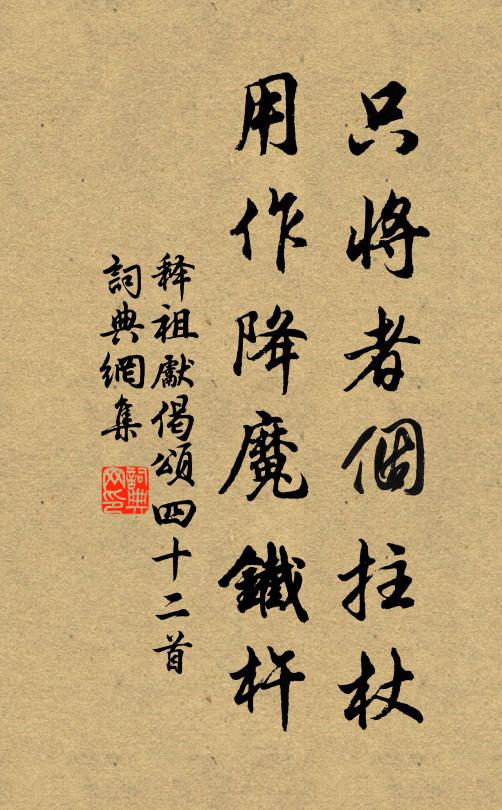 只將者個拄杖
用作降魔鐵杵
释祖獻偈頌四十二首
詞典網集
詞典网印